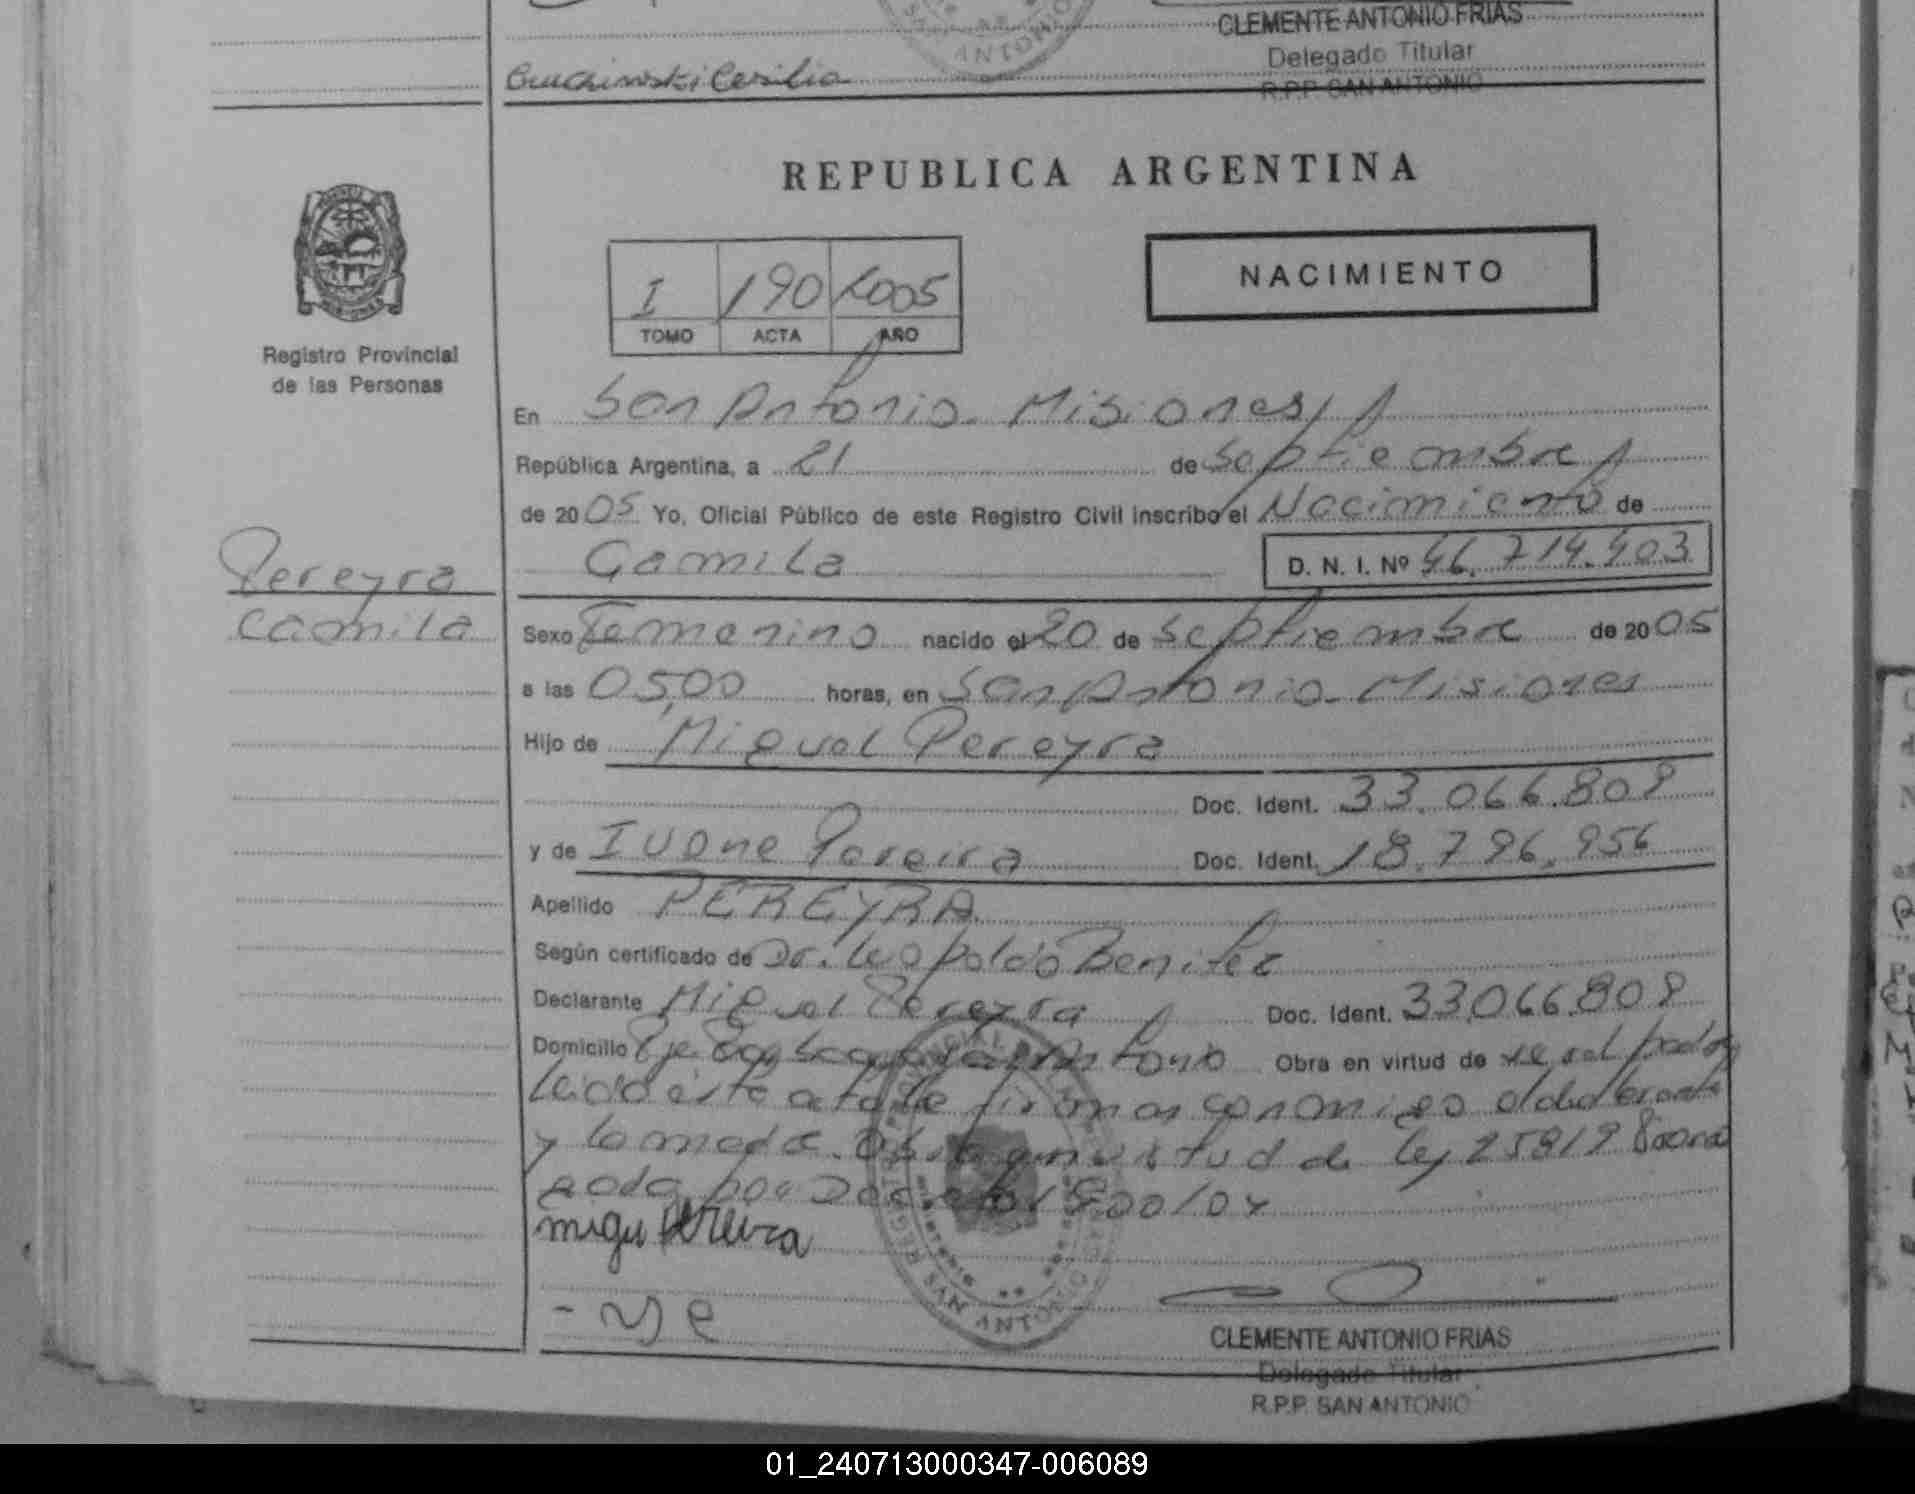 CLEMENTE ANTONIO FRIAS
Delegado Titular
R.P.P. SAN ANTONIO
REPUBLICA ARGENTINA
NACIMIENTO
I 190 2005
TOMO ACTA AÑO
Registro Provincial
de las Personas
En San Antonio - Misiones
República Argentina, a 21 de Septiembre
de 2005 Yo, Oficial Público de este Registro Civil inscribo el Nacimiento de
Camila D. N. I. Nº 46.714.403
Pereyra
Camila
Sexo Femenino nacido el 20 de Septiembre de 2005
a las 05,00 horas, en San Antonio - Misiones
Hijo de Miguel Pereyra
Doc. Ident. 33.066.808
y de Ivone Pereira Doc. Ident. 18.796.956
Apellido PEREYRA
Según certificado de Dr. Leopoldo Benitez
Declarante Miguel Pereyra Doc. Ident. 33.066.808
Domicilio San Antonio Obra en virtud de
Leido este acta le firman conmigo el declarante
y la madre. Obra en virtud de Ley 25819
por Decreto
CLEMENTE ANTONIO FRIAS
Delegado Titular
R.P.P. SAN ANTONIO
01_240713000347-006089